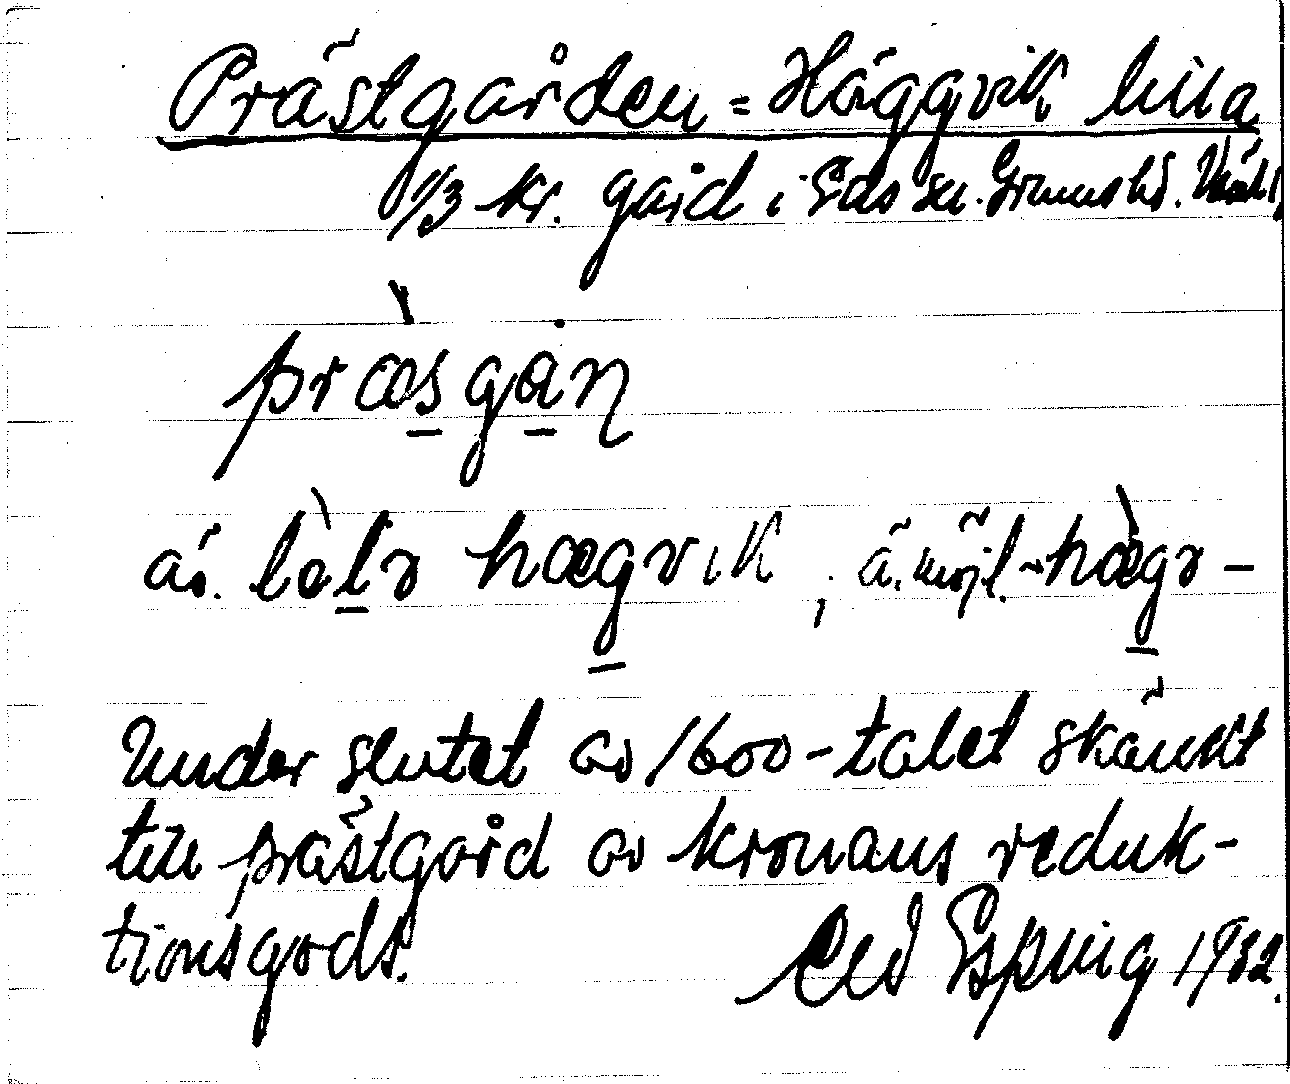 Prästgården = Häggvik lilla
1/3 kr. gård i Eds sn. Grums hd. Värml.
præ̀sgạɳ
äv. lѐlɤ hægvik, ä. möjl. -hæ̀gɤ-
Under slutet av 1600-talet skänkt
till prästgård av kronans reduk-
tionsgods.
Espring 1932.